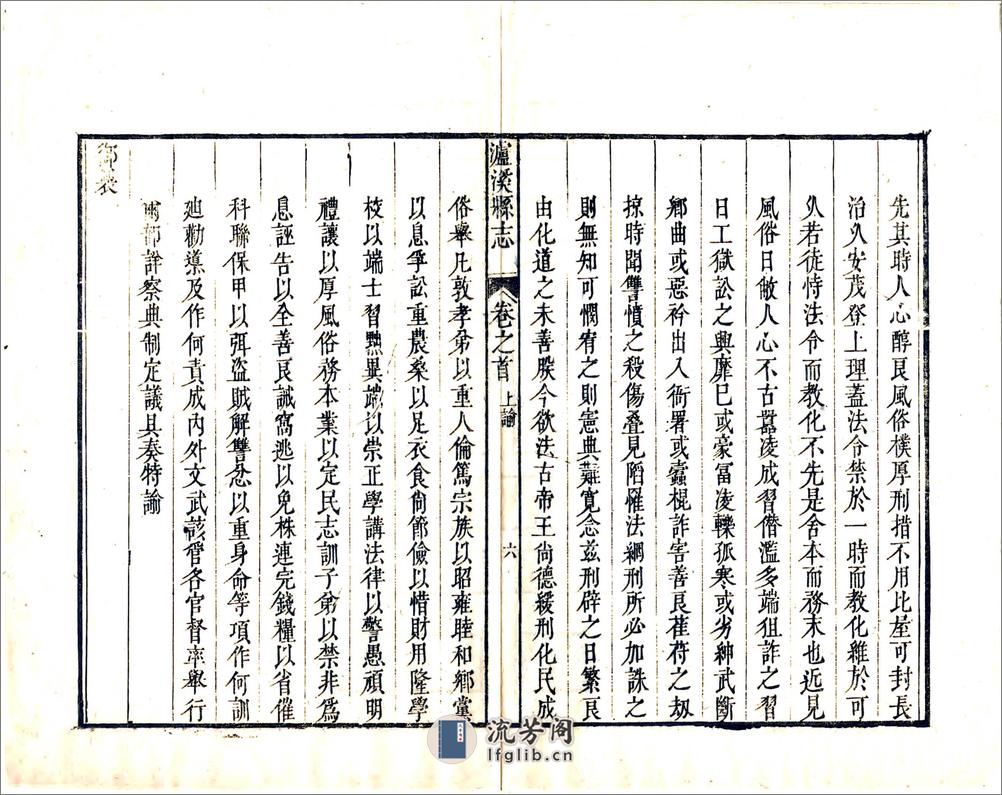 先其時人心醇良風俗樸厚刑措不用比屋可封長
治久安茂登上理蓋法令禁於一時而教化維於可
久若徒恃法令而教化不先是舍本而務末也近見
風俗日敝人心不古嚚凌成習僭濫多端狙詐之習
日工獄訟之興靡已或豪富凌轢孤寒或劣紳武斷
鄉曲或惡衿出入衙署或蠹棍詐害善良萑苻之刼
掠時聞讐憤之殺傷叠見陷罹法網刑所必加誅之
則無知可憫宥之則憲典難寬念兹刑辟之日繁良
由化道之未善朕今欲法古帝王尚德緩刑化民成
瀘溪縣志
卷之首
上諭
六
俗舉凡敦孝弟以重人倫篤宗族以昭雍睦和鄉黨
以息爭訟重農桑以足衣食尚節儉以惜財用隆學
校以端士習黜異端以崇正學講法律以警愚頑明
禮讓以厚風俗務本業以定民志訓子弟以禁非爲
息誣告以全善良誡窩逃以免株連完錢糧以省催
科聯保甲以弭盜賊解讐忿以重身命等項作何訓
廸勸導及作何責成內外文武該管各官督率舉行
爾部詳察典制定議具奏特諭
御製
流芳阁
lfglib.cn